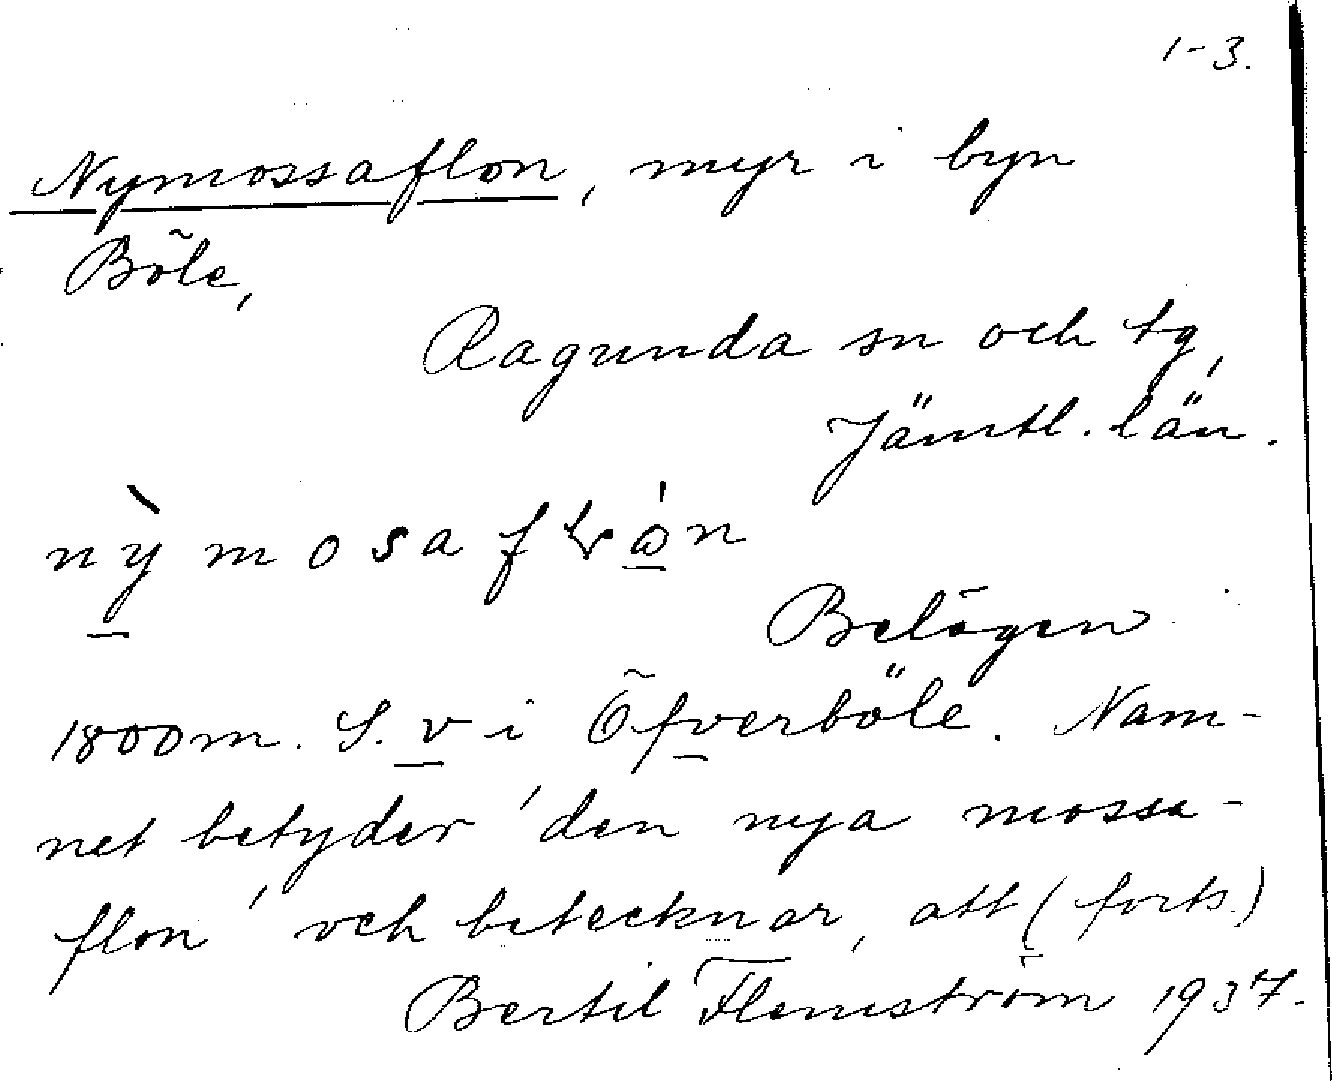 1-3.
Nymossaflon, myr i byn
Böle,
Ragunda sn och tg,
Jämtl. län.
nỳmosaflón
Belägen
1800 m. S. v i Öfverböle. Nam-
net betyder 'den nya mossa-
flon' och betecknar, att (forts.)
Bertil Flemström 1937.